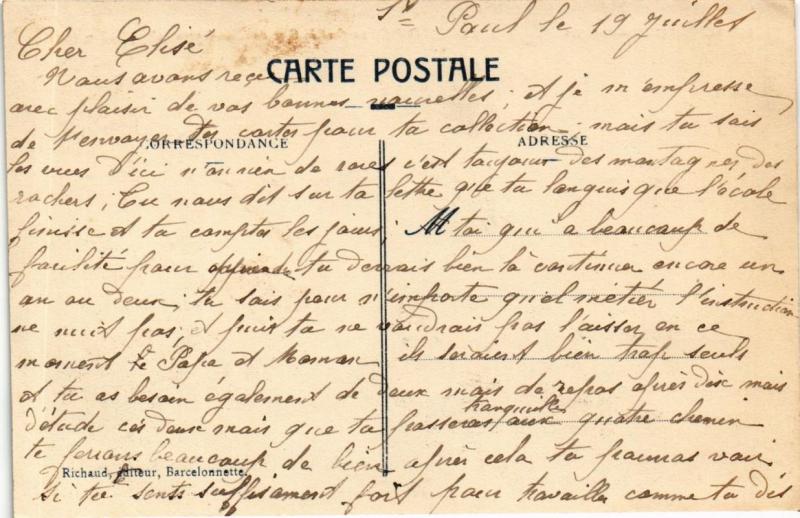 St Paul le 19 Juillet
Cher Elisé
Nous avons reçu
CARTE POSTALE
avec plaisir de vos bonnes nouvelles, et je m'empresse
de t'envoyer des cartes pour ta collection mais tu sais
CORRESPONDANCE
ADRESSE
les vues d'ici n'on rien de rares c'est toujour des montagnes des
rochers, Tu nous dit sur ta lettre que tu languis que l'école
finisse et tu comptes les jours; toi qui a beaucoup de
facilité pour apprendre tu devrais bien la continuer encore un
an ou deux; tu sais pour n'importe quel métier l'instruction
ne nuit pas; et puis tu ne voudrais pas laisser en ce
moment le Papa et Maman ils seraient bien trop seuls
et tu as besoin également de deux mois de repos après dix mois
d'étude ces deux mois que tu passeras tranquille aux quatre chemin
te ferons beaucoup de bien après cela tu pourras voir
Richaud, éditeur, Barcelonnette.
si tu te sents suffisament fort pour travailler comme tu dis